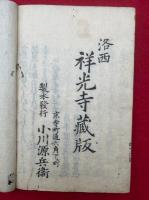 洛西
祥光寺藏版
京寺町通六角下ル町
製本發行
小川源兵衛